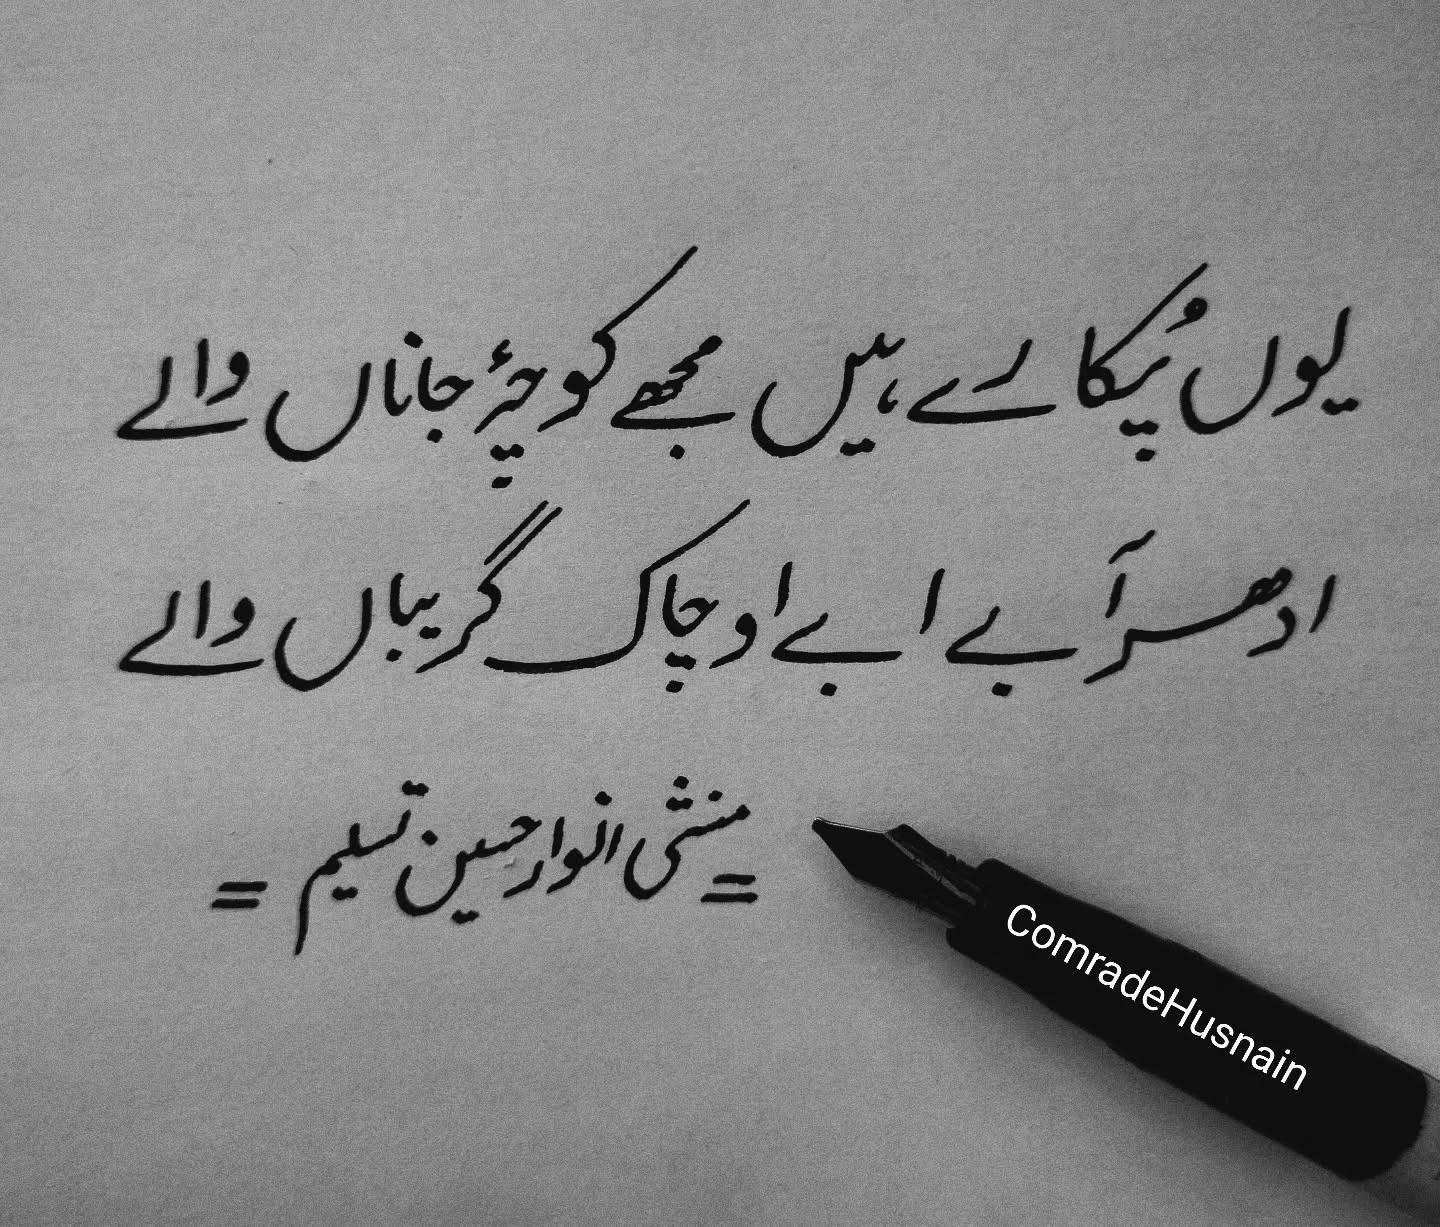 یوں پُکارے ہیں مجھے کوچۂ جاناں والے
ادھر آ بے ابے او چاک گریباں والے
= منشی انوار حسین تسلیم =
ComradeHusnain